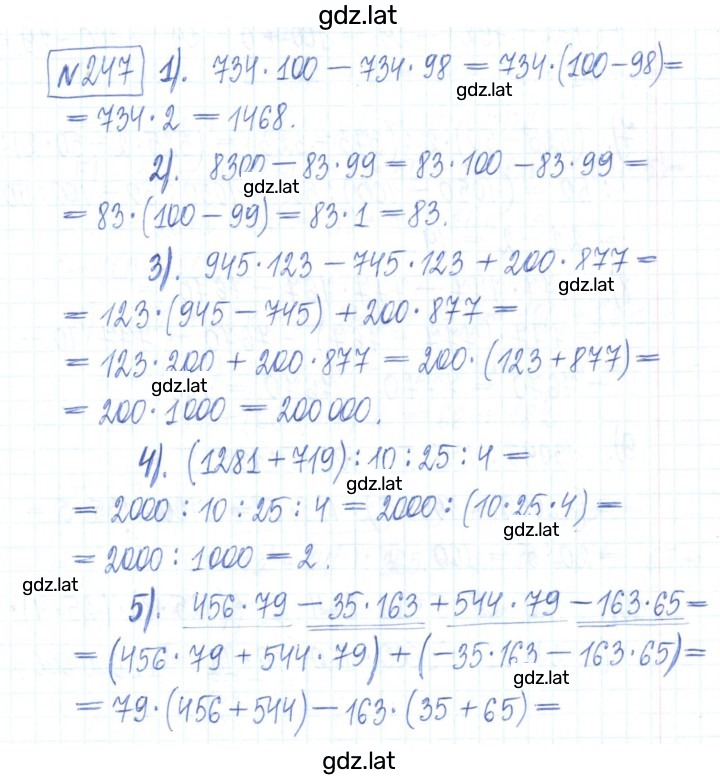 gdz.lat
№247 1). 734·100 − 734·98 = 734·(100−98)=
gdz.lat
= 734·2 = 1468.
2). 8300 − 83·99 = 83·100 − 83·99 =
gdz.lat
= 83·(100 − 99) = 83·1 = 83.
3). 945·123 − 745·123 + 200·877 =
gdz.lat
= 123·(945 − 745) + 200·877 =
= 123·200 + 200·877 = 200·(123+877) =
gdz.lat
= 200·1000 = 200 000.
4). (1281+719):10:25:4 =
gdz.lat
= 2000:10:25:4 = 2000:(10·25·4) =
gdz.lat
= 2000:1000 = 2.
gdz.lat
5). 456·79 − 35·163 + 544·79 − 163·65 =
= (456·79 + 544·79) + (−35·163 − 163·65) =
gdz.lat
= 79·(456+544) − 163·(35+65) =
gdz.lat